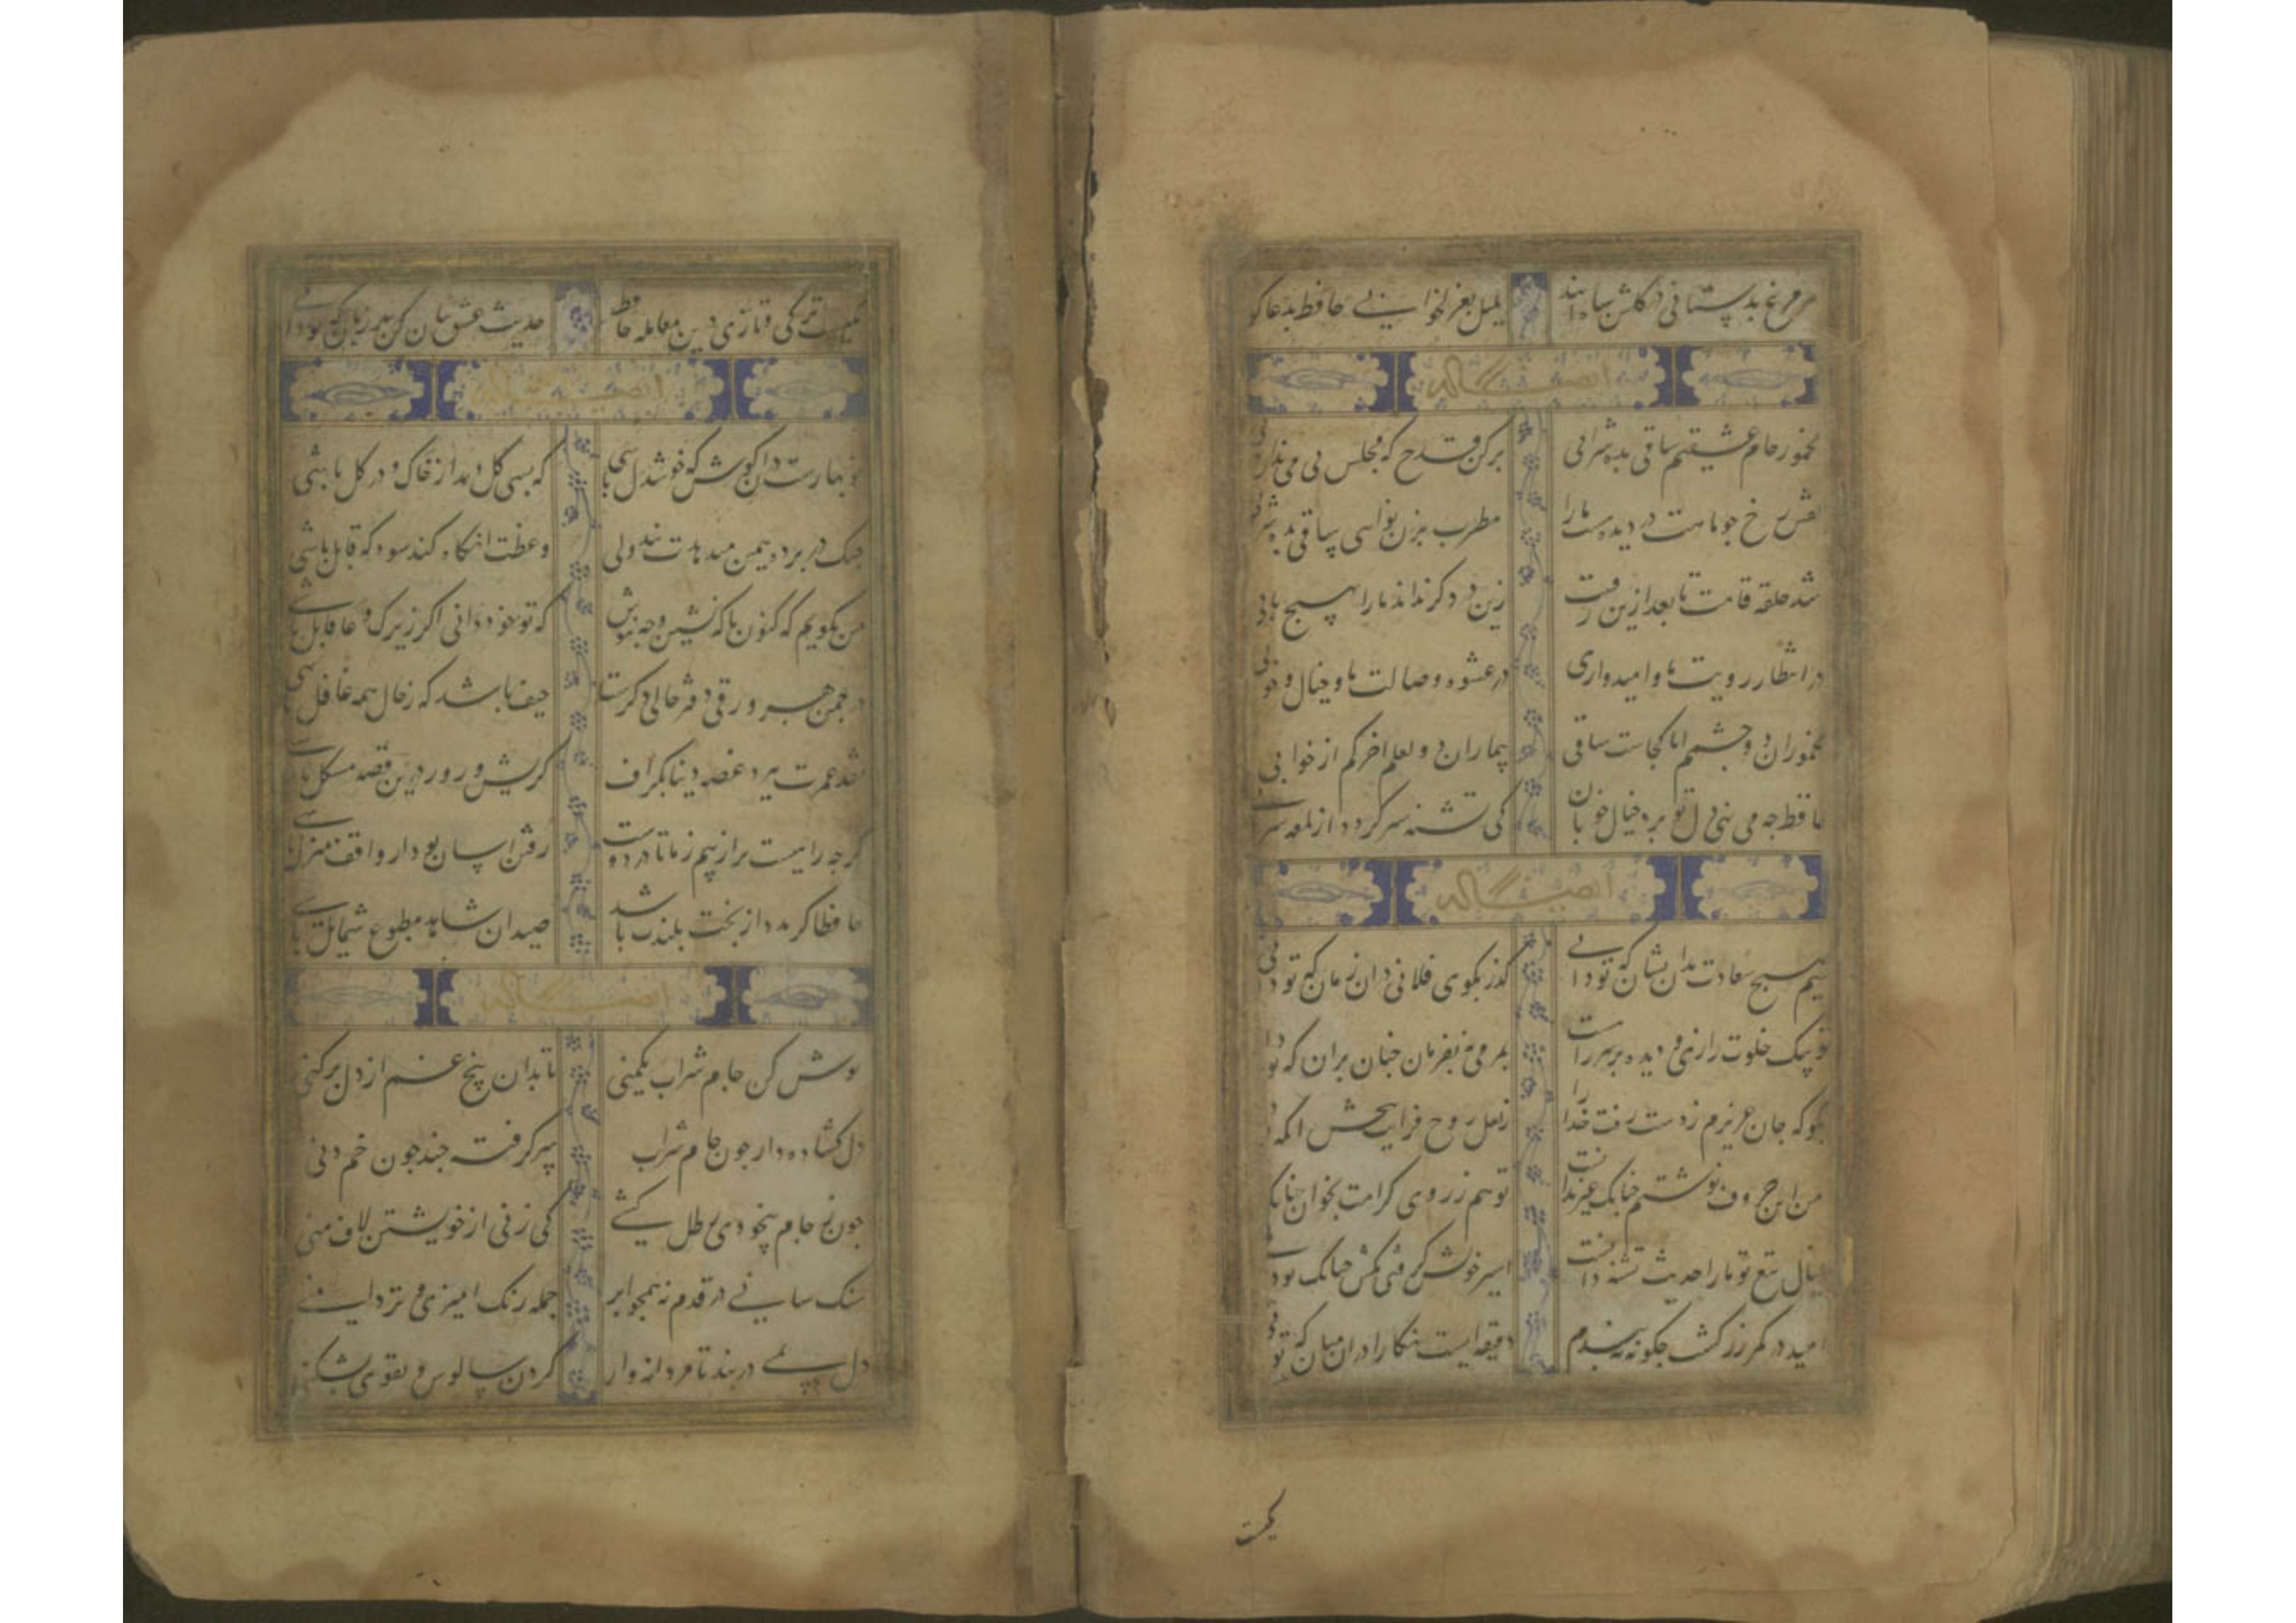 هر مرغ بدستانی در کلشن شاه آیند بلبل بغزلخوانی حافظ بدعا کو
ایضا له
مخمور جام عشقیم ساقی بده شرابی برکن قدح که مجلس بی می ندارد
عشق رخ جو ماهت در دیده ماست مارا مطرب بزن نوایی ساقی بده
شد حلقه قامت ما بعد ازین رقیبت زین در دکر نراند مارا بهیچ بابی
در انتظار رویت ما و امیدواری در عشوه وصالت ما و خیال و خوابی
مخموران دو چشم ایا کجاست ساقی بیماران دو لعلم اخر کم از جوابی
حافظ جه می نهی دل تو بر خیال خوبان کی تشنه سیر کردد از لمعه سراب
ایضا له
نسیم صبح سعادت بدان نشان که تو دانی کذر بکوی فلانی در ان زمان که تو دانی
تو پیک خلوت رازی و دیده بر سر راهت بمردمی نه بفرمان جنان بران که تو
بکو که جان عزیزم ز دست رفت خدا را ز لعل روح فزایت ببخش انکه
من این حروف نوشتم جنانک غیر ندانست تو هم ز روی کرامت بخوان جنانک
خیال تیغ تو ما را حدیث تشنه و ابست اسیر خویش کرفتی بکش جنانک تو
امید در کمر زرکشت جکونه نبندم دقیقه ایست نکارا در ان میان که تو
یکیست
یکیست ترکی و تازی درین معامله حافظ حدیث عشق بیان کن بهر زبان که تو دانی
ایضا له
نو بهارست در ان کوش که خوشدل باشی که بسی کل بدمد از خاک و تو در کل باشی
جنک در پرده همین میدهدت پند ولی وعظت انکاه کند سود که قابل باشی
من نکویم که کنون با که نشین و جه بنوش که تو خود دانی اکر زیرک و عاقل باشی
در جمن هر ورقی دفتر حالی دکرست حیف باشد که ز حال همه غافل باشی
نقد عمرت ببرد غصه دنیا بکزاف کر شب و روز درین قصه مشکل باشی
کرجه راهیست بر از بیم ز ما تا در دوست رفتن اسان بود ار واقف منزل باشی
حافظا کر مدد از بخت بلندت باشد صید ان شاهد مطبوع شمایل باشی
ایضا له
نوش کن جام شراب یکمنی تا بدان بیخ غم از دل برکنی
دل کشاده دار جون جام شراب سر کرفته جند جون خم دنی
جون ز جام بیخودی رطلی کشی کی زنی از خویشتن لاف منی
سنک سانی در قدم نه همجو ابر جمله رنک امیزی و تر دامنی
دل بمی دربند تا مردانه وار کردن سالوس و تقوی بشکنی